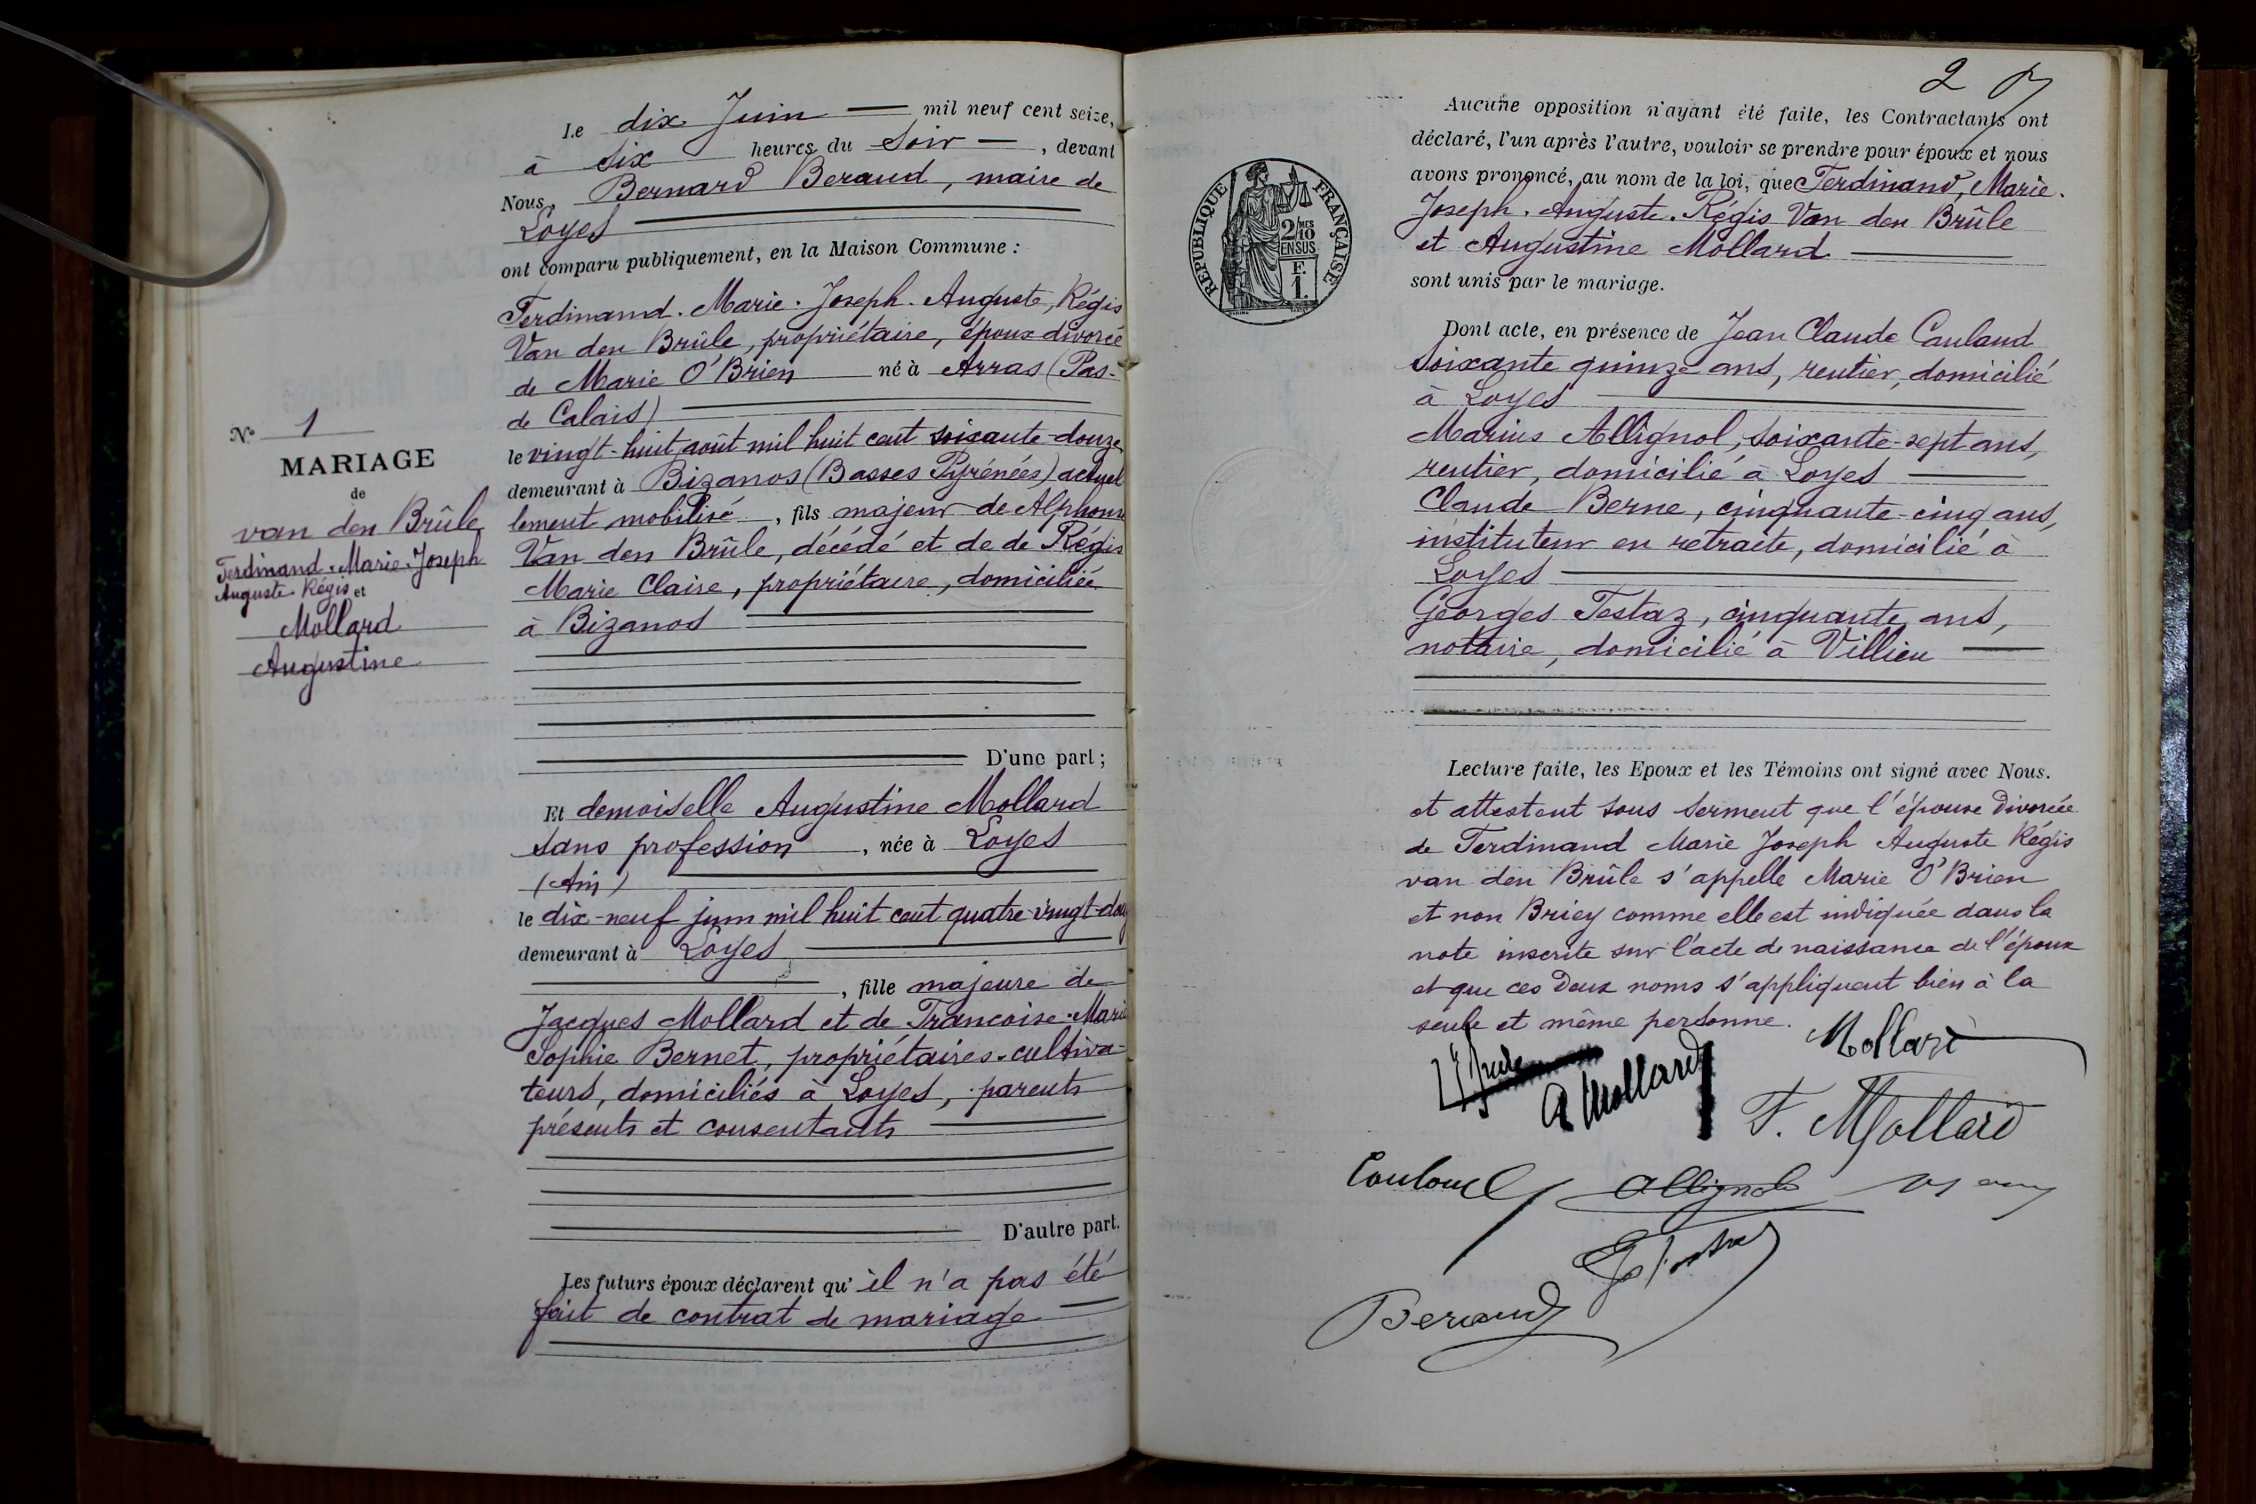 Le dix Juin mil neuf cent seize,
à Six heures du Soir, devant
Nous, Bernard Beraud, maire de
Loyes
ont comparu publiquement, en la Maison Commune :
Ferdinand. Marie. Joseph. Auguste, Régis
Van den Brûle, propriétaire, époux divorcé
de Marie O'Brien né à Arras (Pas-
de Calais)
le vingt-huit août mil huit cent soixante-douze
demeurant à Bizanos (Basses Pyrénées) actuel
lement mobilisé, fils majeur de Alphonse
Van den Brûle, décédé et de de Régis
Marie Claire, propriétaire, domiciliée
à Bizanos
D'une part ;
Et demoiselle Augustine Mollard
sans profession, née à Loyes
(Ain)
le dix-neuf juin mil huit cent quatre-vingt-douz
demeurant à Loyes
, fille majeure de
Jacques Mollard et de Francoise. Marie
Sophie Bernet, propriétaires-cultiva-
teurs, domiciliés à Loyes, parents
présents et consentants
D'autre part.
Les futurs époux déclarent qu' il n'a pas été
fait de contrat de mariage
N° 1
MARIAGE
de
van den Brûle
Ferdinand. Marie. Joseph
Auguste. Régis et
Mollard
Augustine
2
REPUBLIQUE FRANÇAISE
2/10 MES
EN SUS
F.
1.
Aucune opposition n'ayant été faite, les Contractants ont
déclaré, l'un après l'autre, vouloir se prendre pour époux et nous
avons prononcé, au nom de la loi, que Ferdinand, Marie.
Joseph. Auguste. Régis Van den Brûle
et Augustine Mollard
sont unis par le mariage.
Dont acte, en présence de Jean Claude Couland
soixante quinze ans, rentier, domicilié
à Loyes
Marius Allignol, soixante-sept ans,
rentier, domicilié à Loyes
Claude Berne, cinquante-cinq ans,
instituteur en retraite, domicilié à
Loyes
Georges Testaz, cinquante ans,
notaire, domicilié à Villieu
Lecture faite, les Epoux et les Témoins ont signé avec Nous.
et attestent sous serment que l'épouse divorcée
de Ferdinand Marie Joseph Auguste Régis
van den Brûle s'appelle Marie O'Brien
et non Briey comme elle est indiquée dans la
note inscrite sur l'acte de naissance de l'époux
et que ces deux noms s'appliquent bien à la
seule et même personne.
Mollard
A Mollard
F. Mollard
Couloud Allignol
Beraud